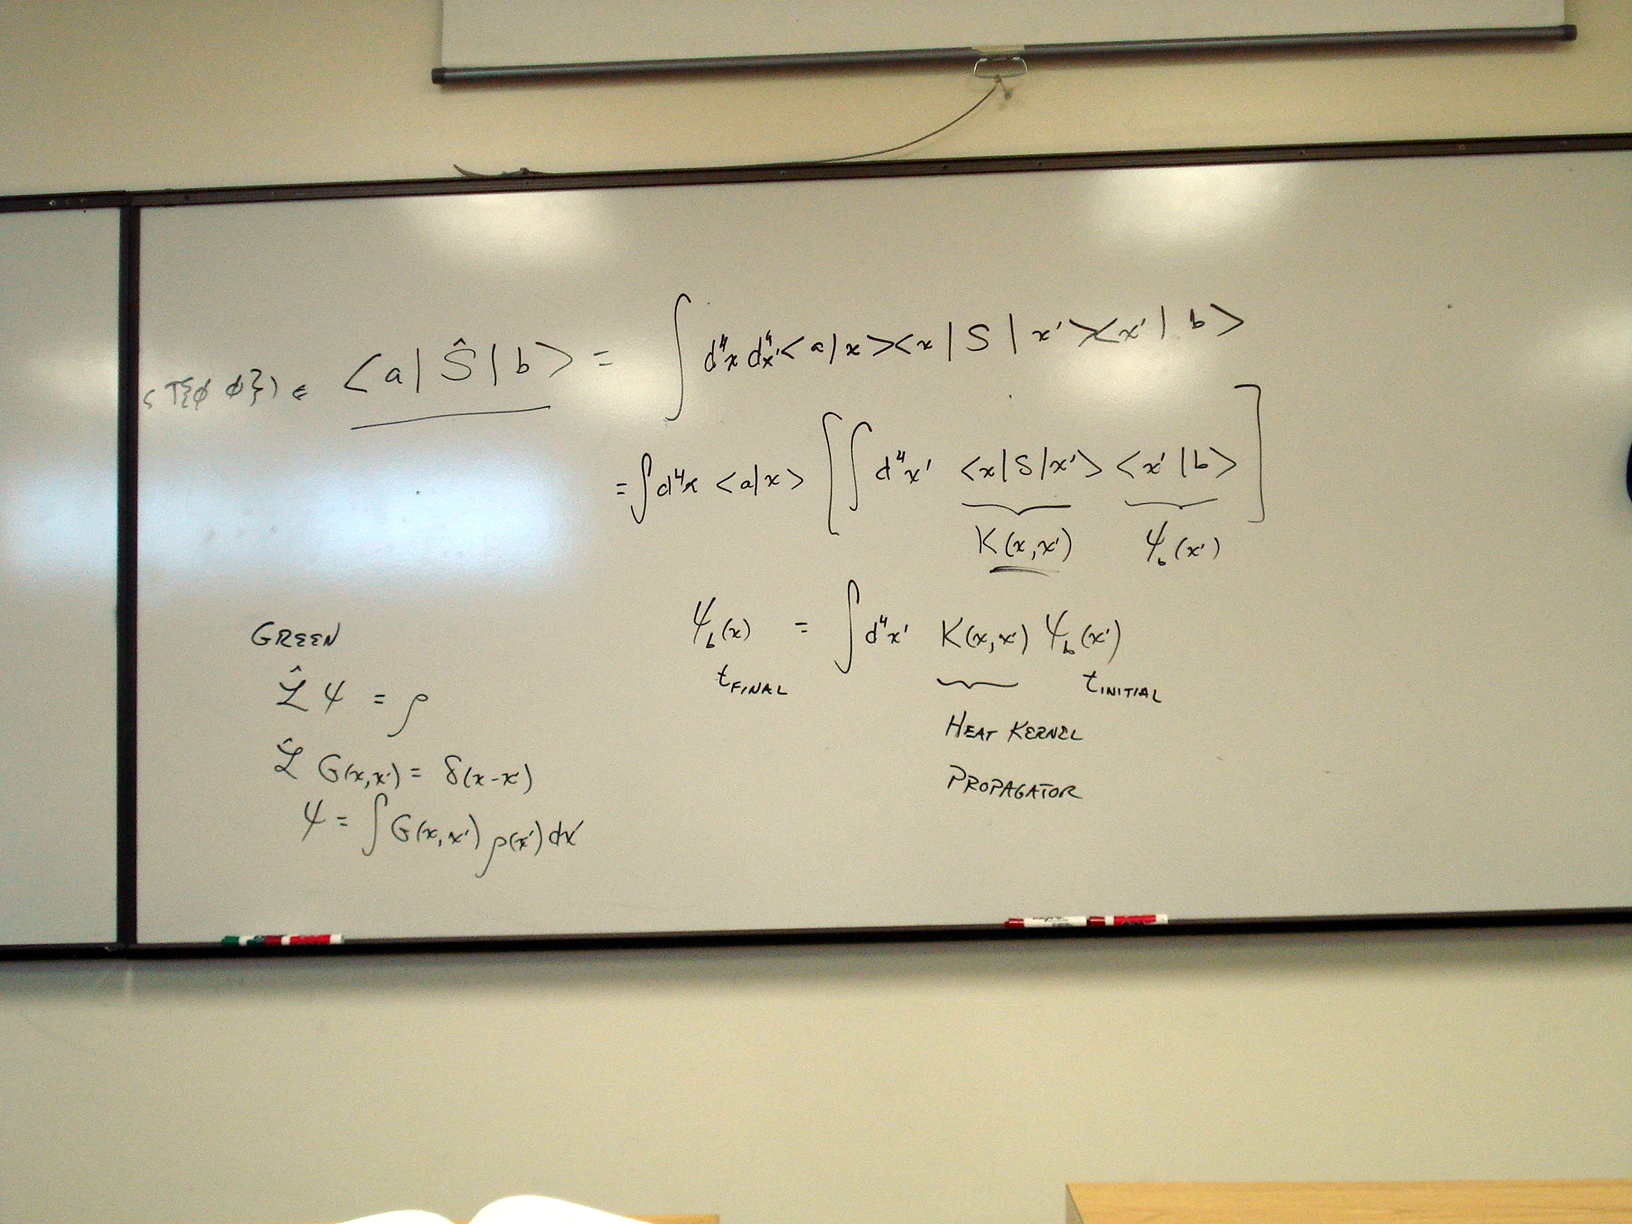 ⟨T{φ φ}⟩ ∈ ⟨a|Ŝ|b⟩ = ∫ d⁴x d⁴x' ⟨a|x⟩⟨x|S|x'⟩⟨x'|b⟩
= ∫ d⁴x ⟨a|x⟩ [ ∫ d⁴x' ⟨x|S|x'⟩ ⟨x'|b⟩ ]
K(x,x') ψ_b(x')
ψ_b(x) = ∫ d⁴x' K(x,x') ψ_b(x')
t_FINAL t_INITIAL
HEAT KERNEL
PROPAGATOR
GREEN
ℒ̂ ψ = ρ
ℒ̂ G(x,x') = δ(x-x')
ψ = ∫ G(x,x') ρ(x') dx'